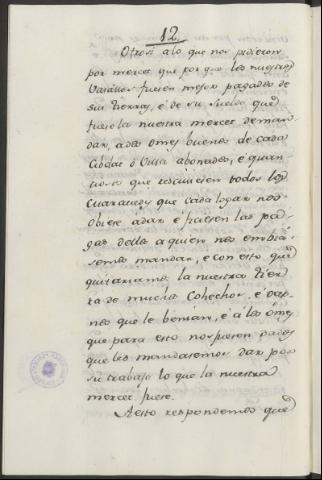 12.
Otrosi alo que nos pidieron
por merced que por que los nuestros
Vasallos fuesen mejor pagados de
sus tierras, é de su sueldo que
fuese la nuestra merced deman-
dar, ados omes buenos de cada
Cibdat ó Villa abonados, é quan-
tiosos que rescibiesen todos los
maravedis que cada logar nos
obiere ádar é fisiesen las pa-
gas dello aquien nos embiá-
semos mandar, e con esto que
quitariamos la nuestra tier-
ra de muchos Cohechos, é dap-
nos que le benian, é á los omes
que para esto nos fuesen dados
que les mandasemos dar por
su trabajo lo que la nuestra
merced fuese.
Aesto respondemos que